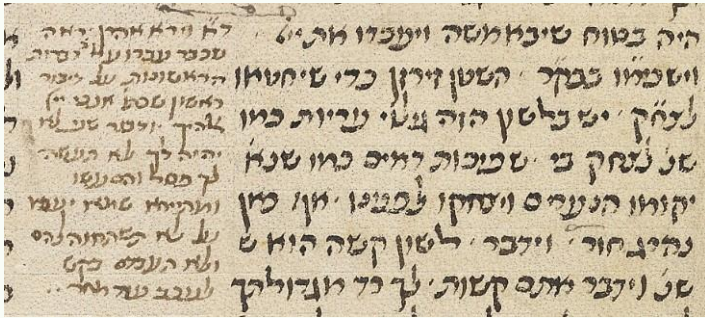 היה בטוח שיבא משה ויעבדו את יי'
וישכימו בבקר . השטן זירזן כדי שיחטאו
לצחק . יש בלשון הזה גילוי עריות כמו
שנ' לצחק בי . שפיכות דמים כמו שנא'
יקומו הנערים וישחקו לפנינו אף כאן
נהרג חור . וידבר . לשון קשה הוא ש
שנ' וידבר אתם קשות . לך רד מגדולתך
ד"א וירא אהרן ראה
שכבר עברו על ב' דברות
הראשונות על דיבור
ראשון אנכי יי'
אלהיך . ודבור שני לא
יהיה לך לא תעשה
לך פסל והם עשו
ומתיירא שלא יעברו
על לא תשתחוה להם
ולא תעבדם בקש
לעכב עד מחר